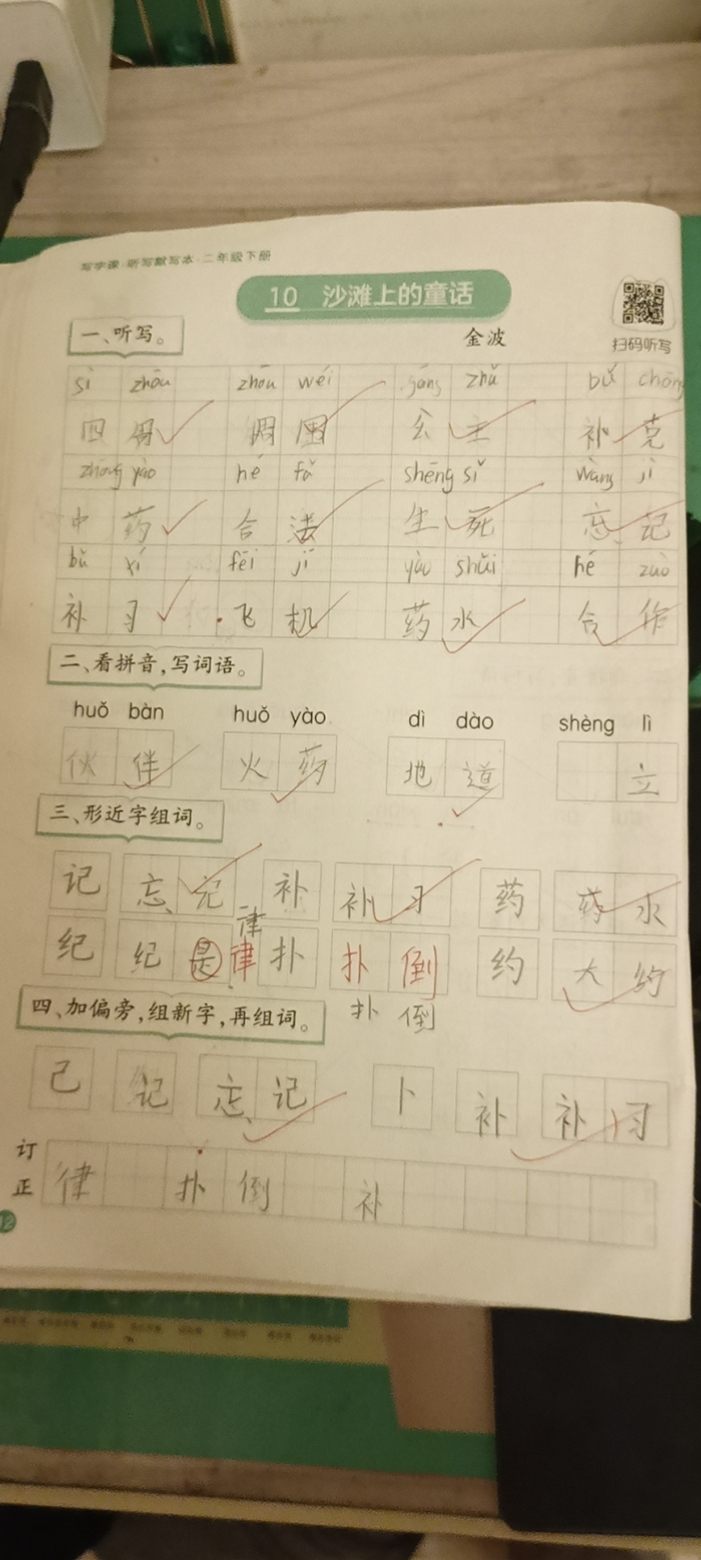 写字课·听写默写本·二年级下册
10 沙滩上的童话
金波
扫码听写
一、听写。
sì zhōu zhōu wéi gōng zhǔ bǔ chōng
四周 周围 公主 补充
zhōng yào hé fǎ shēng sǐ wàng jì
中药 合法 生死 忘记
bǔ xí fēi jī yào shuǐ hé zuò
补习 飞机 药水 合作
二、看拼音,写词语。
huǒ bàn huǒ yào dì dào shèng lì
伙伴 火药 地道 立
三、形近字组词。
记 忘记 补 补习 药 药水
律
纪 纪是律 扑 扑倒 约 大约
扑倒
四、加偏旁,组新字,再组词。
己 记 忘记 卜 补 补习
订正 律 扑倒 补
12